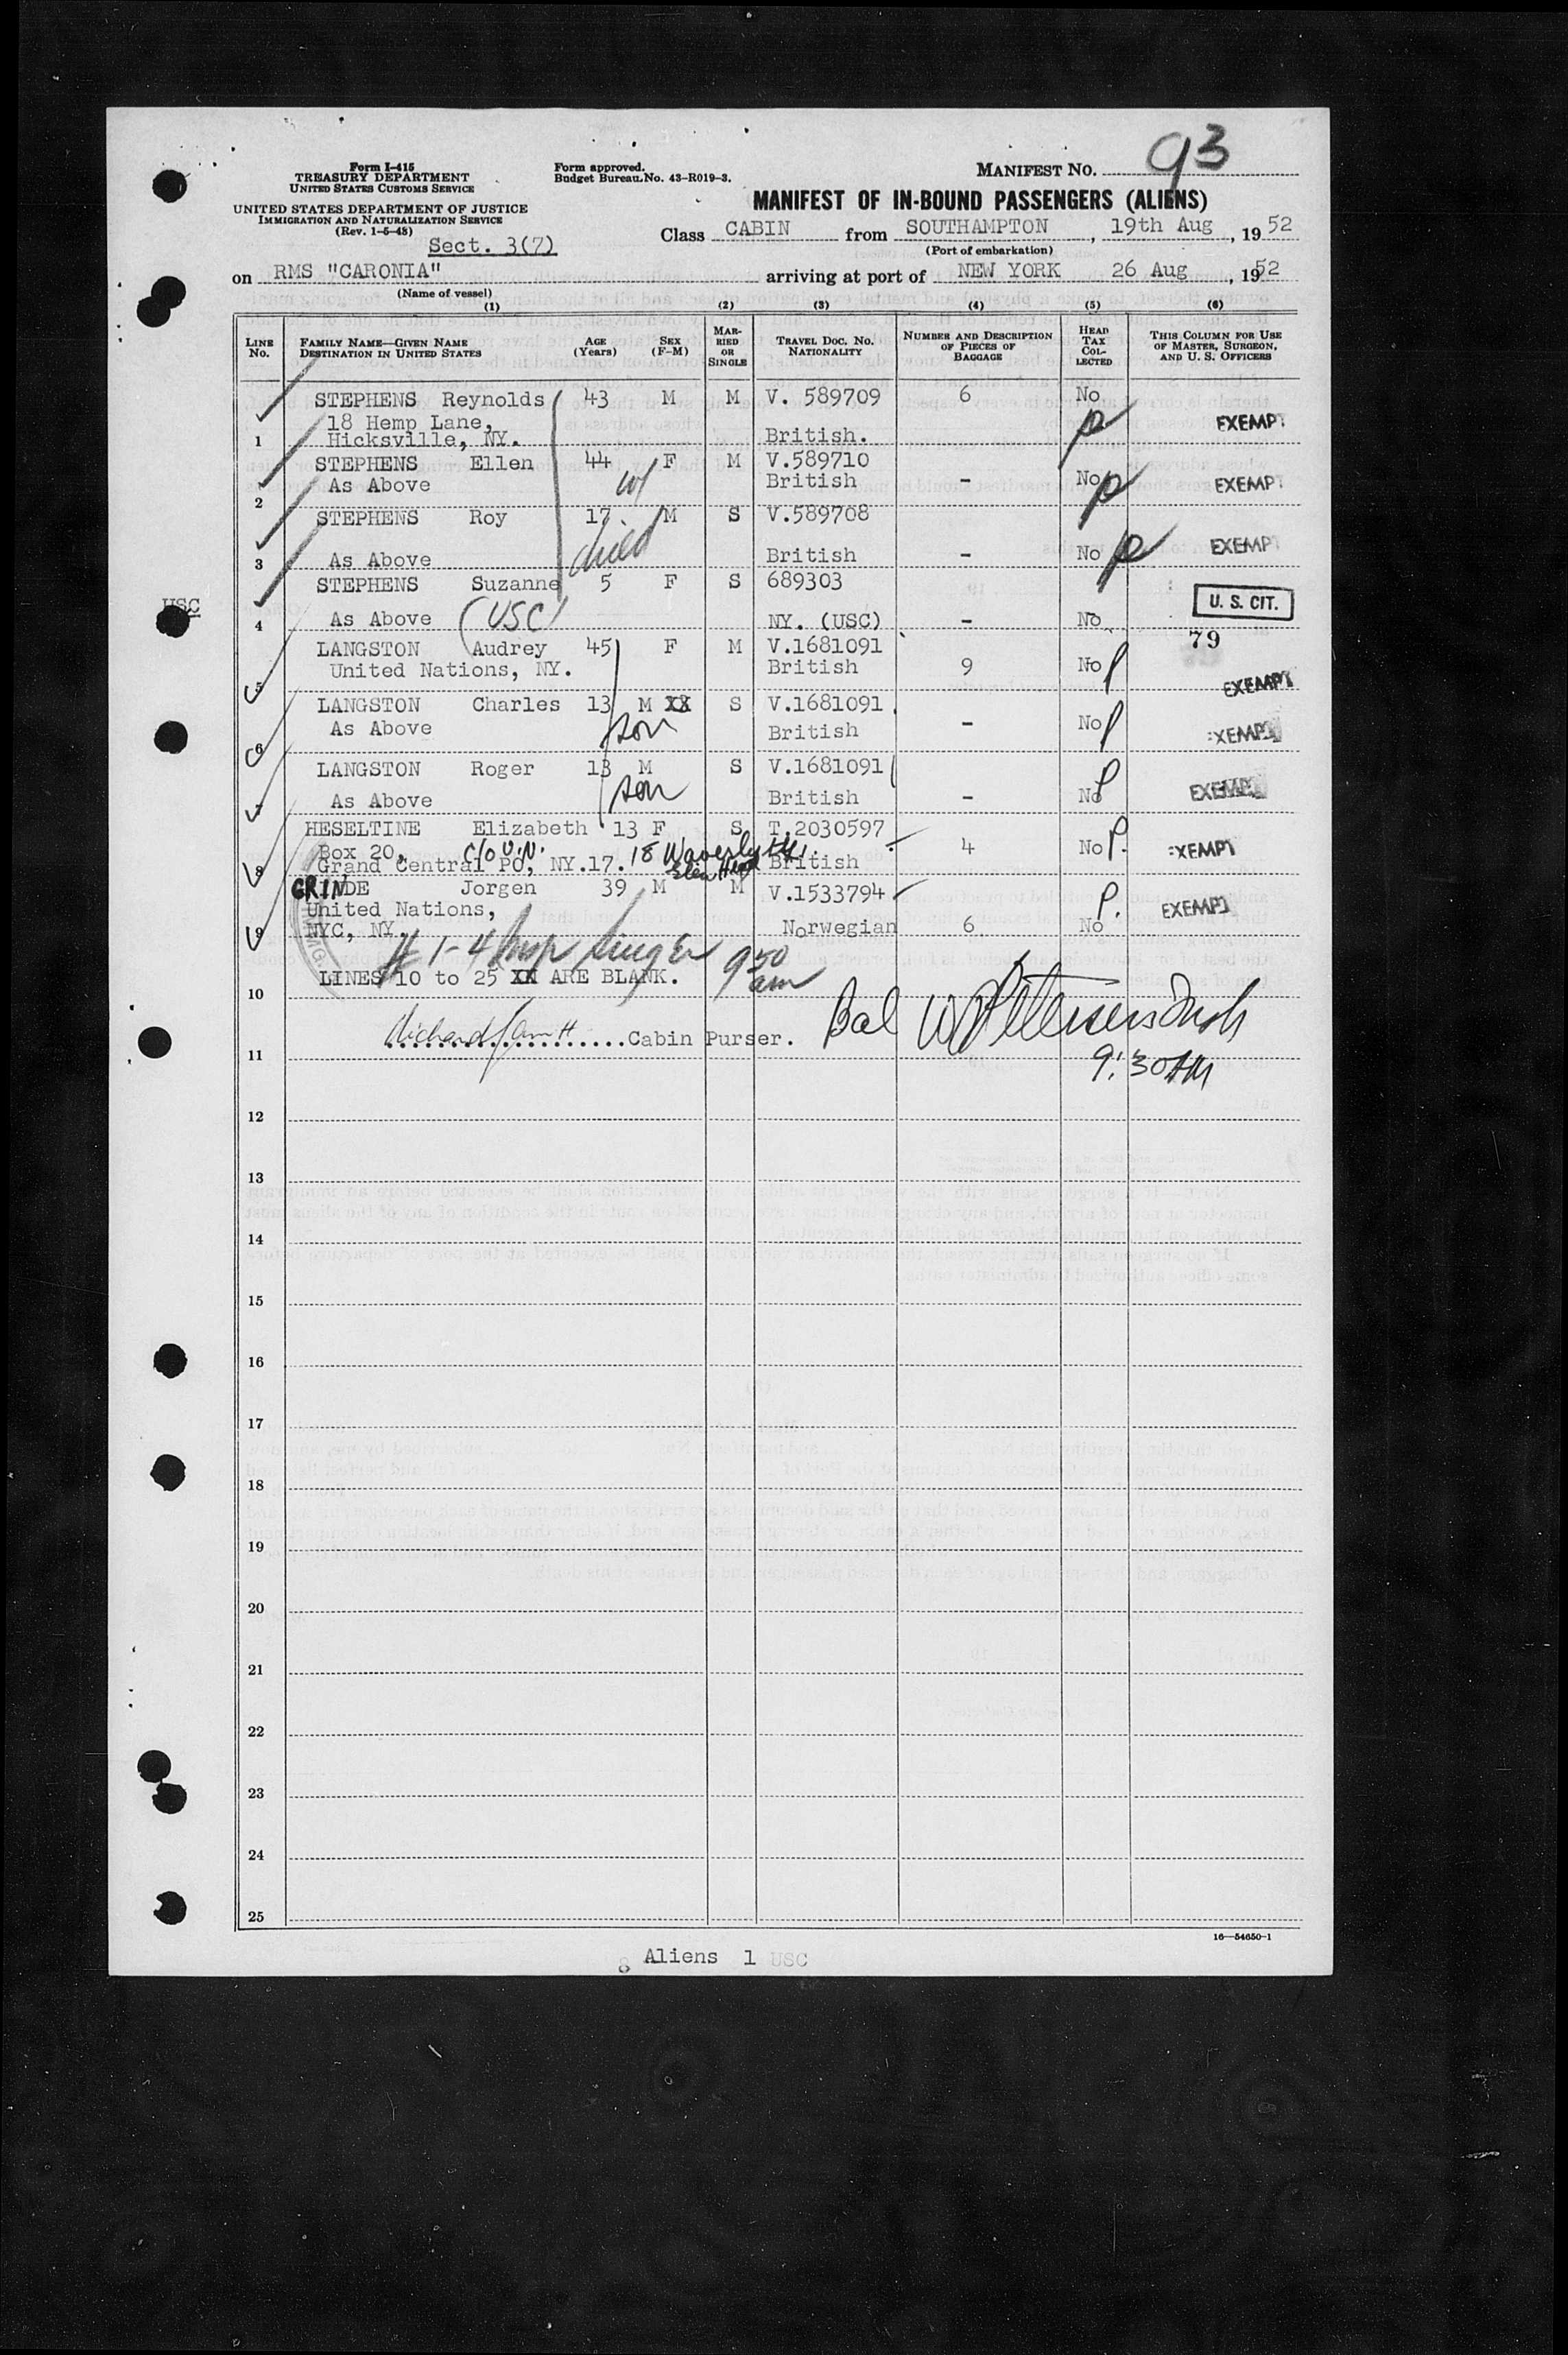 Form I-415
TREASURY DEPARTMENT
UNITED STATES CUSTOMS SERVICE
UNITED STATES DEPARTMENT OF JUSTICE
IMMIGRATION AND NATURALIZATION SERVICE
(Rev. 1-5-48)
Sect. 3(7)
Form approved.
Budget Bureau No. 43-R019-3.
MANIFEST NO. 93
MANIFEST OF IN-BOUND PASSENGERS (ALIENS)
Class CABIN from SOUTHAMPTON, 19th Aug, 1952
(Port of embarkation)
on RMS "CARONIA" arriving at port of NEW YORK 26 Aug, 1952
(Name of vessel)
(1) (2) (3) (4) (5) (6)
LINE NO. FAMILY NAME—GIVEN NAME DESTINATION IN UNITED STATES AGE (Years) SEX (F-M) MARRIED OR SINGLE TRAVEL DOC. NO. NATIONALITY NUMBER AND DESCRIPTION OF PIECES OF BAGGAGE HEAD TAX COLLECTED THIS COLUMN FOR USE OF MASTER, SURGEON, AND U. S. OFFICERS
STEPHENS Reynolds 43 M M V. 589709 6 No
18 Hemp Lane, p EXEMPT
1 Hicksville, NY. British.
STEPHENS Ellen 44 F M V.589710
As Above w/ British - No p EXEMPT
2
STEPHENS Roy 17. M S V.589708
child
3 As Above British - No p EXEMPT
STEPHENS Suzanne 5 F S 689303
USC U. S. CIT.
4 As Above (USC) NY. (USC) - No
LANGSTON Audrey 45 F M V.1681091 79
United Nations, NY. British 9 No p
5 EXEMPT
LANGSTON Charles 13 M XX S V.1681091
As Above son British - No p EXEMPT
6
LANGSTON Roger 13 M S V.1681091
7 As Above son British - No p EXEMPT
HESELTINE Elizabeth 13 F S T.2030597
Box 20, C/O U.N. 18 Waverly 4 No P. EXEMPT
8 Grand Central PO, NY.17. Glen Head British
GRINDE Jorgen 39 M M V.1533794 P.
United Nations, EXEMPT
9 NYC, NY. Norwegian 6 No
# 1-4 Insp Singer 9 50 am
LINES 10 to 25 XX ARE BLANK.
10
Richard ....................Cabin Purser. Bal
11
9:30 AM
12
13
14
15
16
17
18
19
20
21
22
23
24
25
16—54650-1
8 Aliens 1 USC